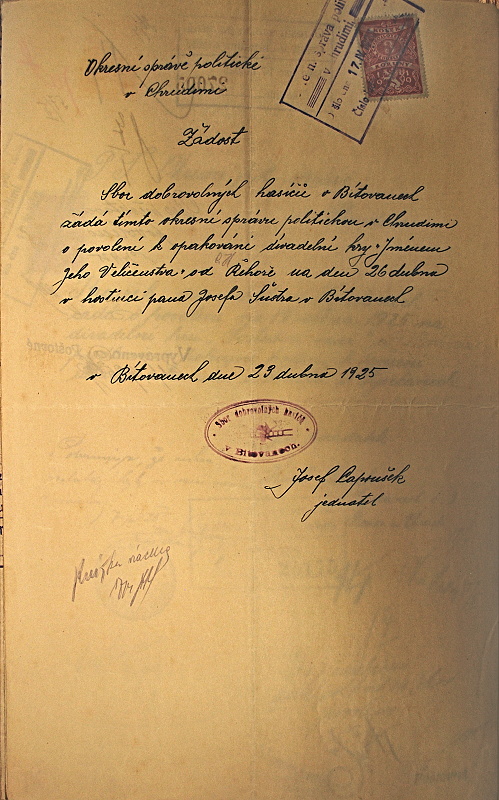 Okresní správě politické
v Chrudimi
Žádost
Sbor dobrovolných hasičů v Bítovanech
žádá tímto okresní správu politickou v Chrudimi
o povolení k opakování divadelní hry „Jménem
Jeho Veličenstva" od Řehoře na den 26 dubna
v hostinci pana Josefa Šustra v Bítovanech
v Bítovanech dne 23 dubna 1925
Sbor dobrovolných hasičů
v Bítovanech.
Josef Capoušek
jednatel
správa polit
v Chrudimi
17. IV
Číslo